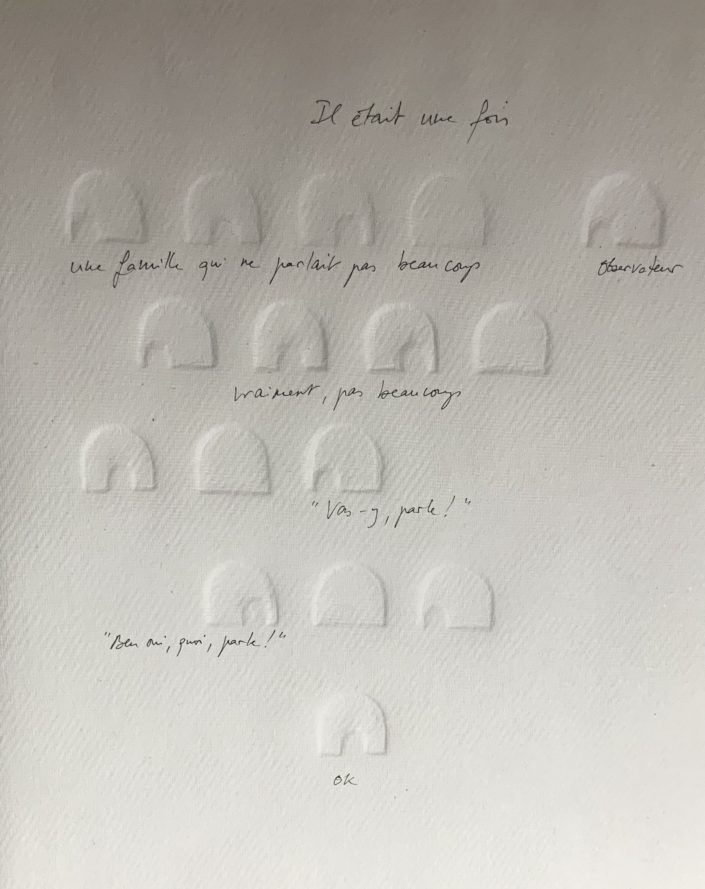 Il était une fois
une famille qui ne parlait pas beaucoup
Observateur
vraiment, pas beaucoup
"Vas-y, parle!"
"Ben oui, quoi, parle!"
OK